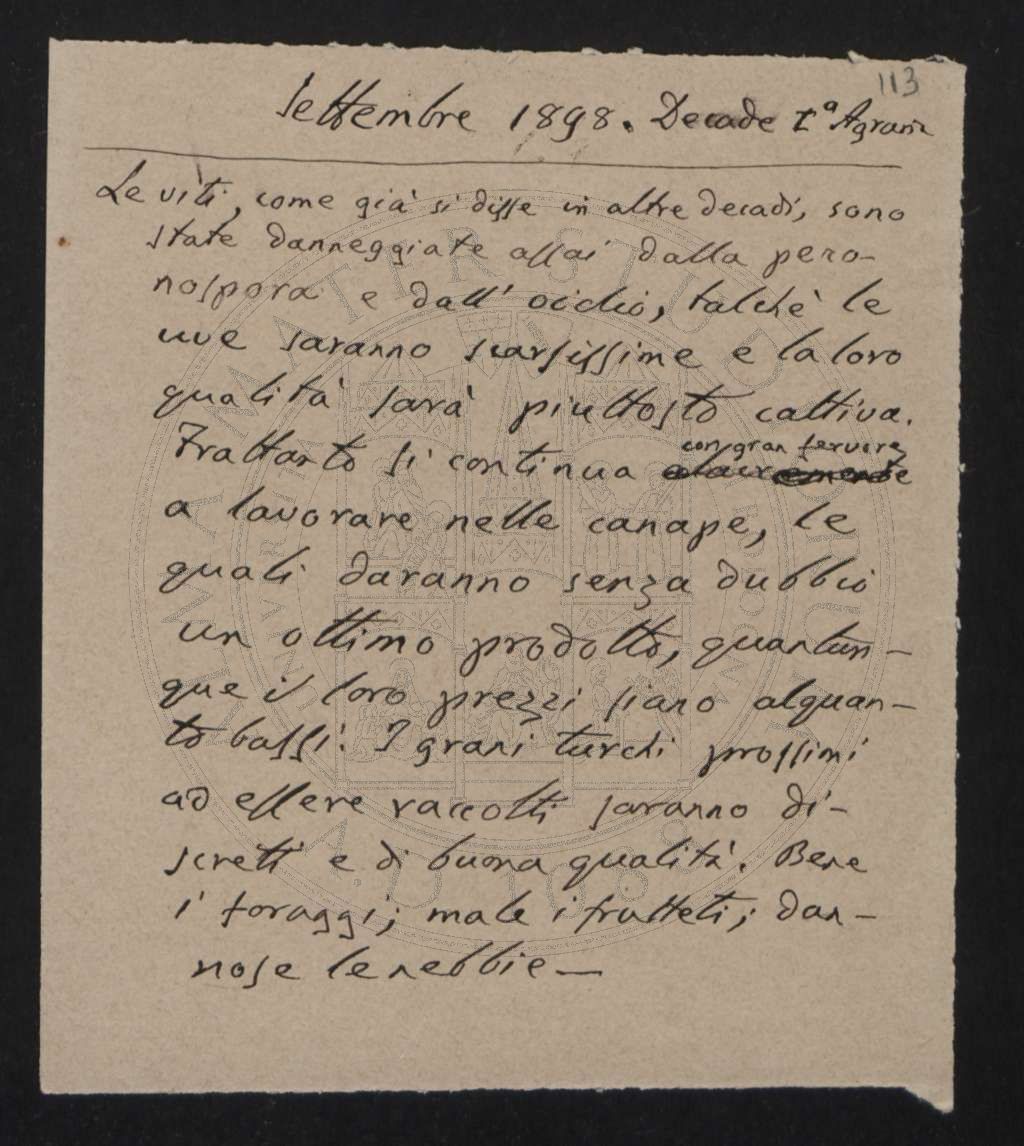 113
Settembre 1898. Decade Iª Agraria
Le viti, come già si disse in altre decadi, sono
state danneggiate assai dalla pero-
nospora e dall' oidio, talchè le
uve saranno scarsissime e la loro
qualità sarà piuttosto cattiva.
con gran fervore
Frattanto si continua alacremente
a lavorare nelle canape, le
quali daranno senza dubbio
un ottimo prodotto, quantun-
que i loro prezzi siano alquan-
to bassi. I grani turchi prossimi
ad essere raccolti saranno di-
screti e di buona qualità. Bene
i foraggi; male i frutteti; dan-
nose le nebbie —
ALMA MATER STUDIORUM
A.D. 1088